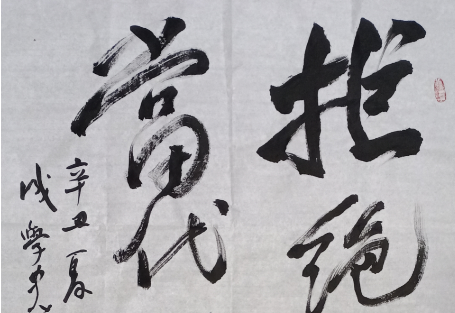 拒绝
當代
辛丑夏
學